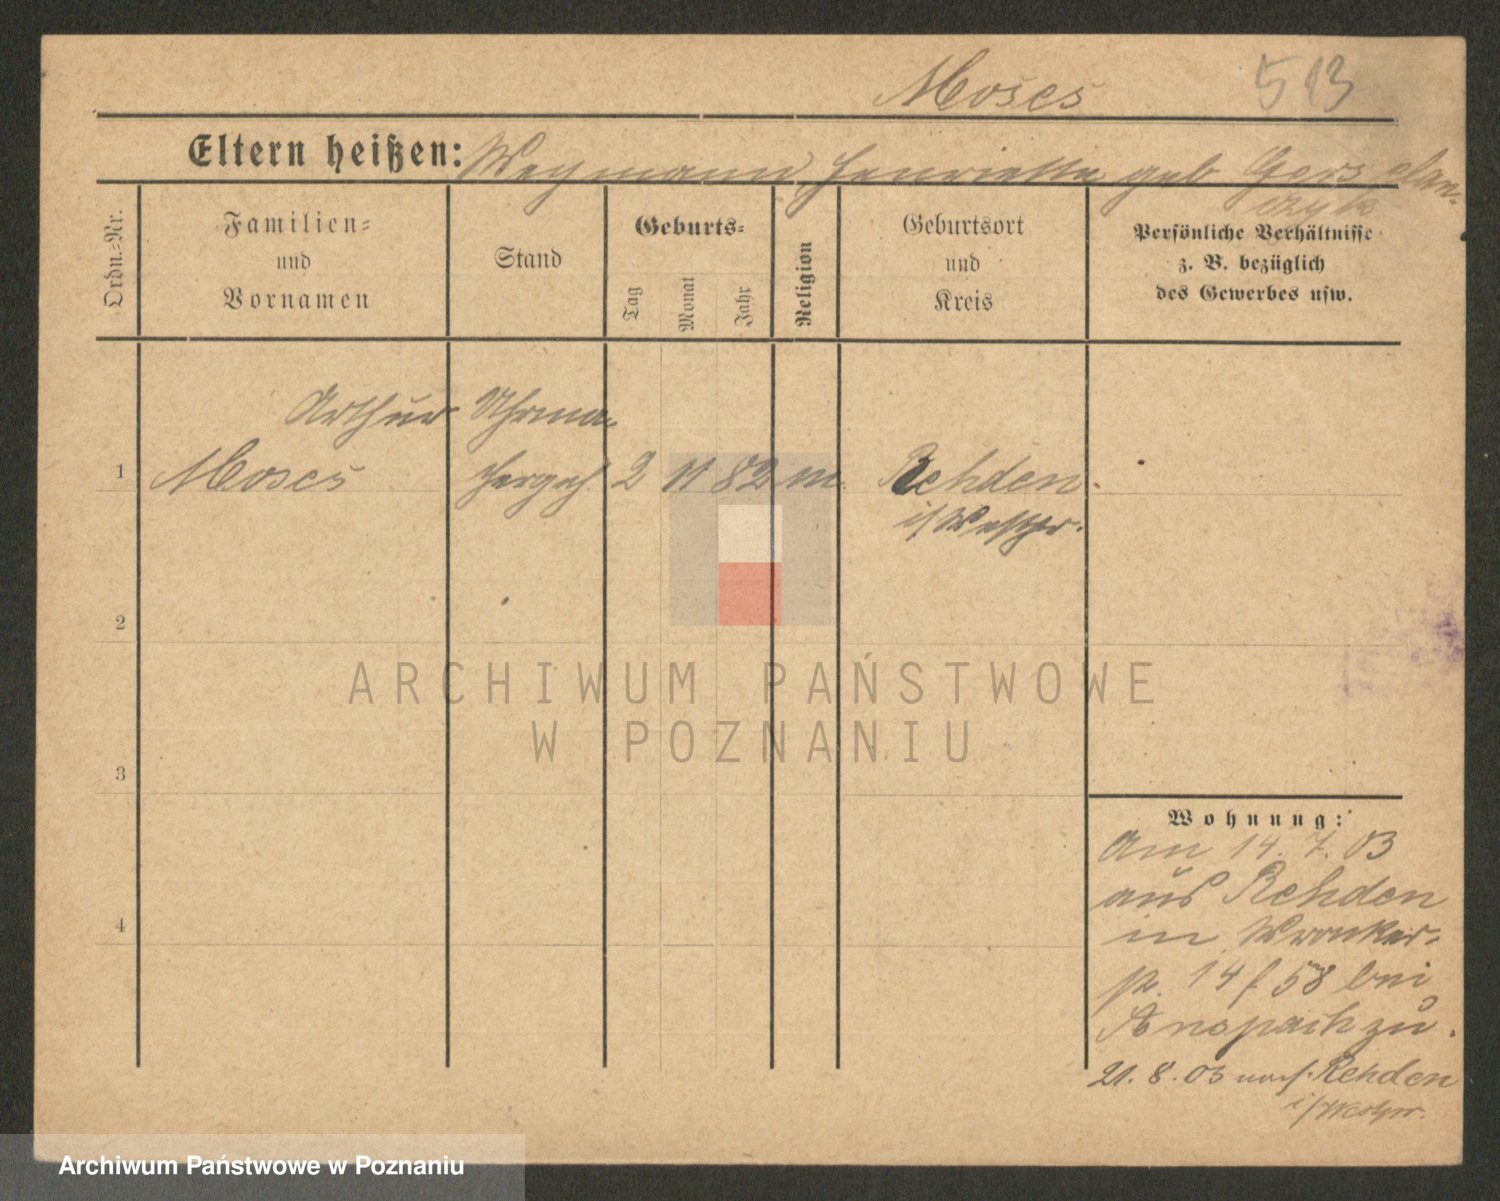 Moses
513
Eltern heißen: Weymann, Henriette geb Gersplan-
czyk
Ordn.=Nr.
Familien=
und
Vornamen
Stand
Geburts=
Tag
Monat
Jahr
Religion
Geburtsort
und
Kreis
Persönliche Verhältnisse
z. B. bezüglich
des Gewerbes usw.
Arthur Uhrma-
1 Moses chergeh. 2 11 82 m. Rehden.
i/Westpr.
2
3
4
ARCHIWUM PAŃSTWOWE
W POZNANIU
Wohnung:
Am 14. 7. 03
aus Rehden
in Wronker-
pl. 14/58 bei
Anspach zu.
21. 8. 03 nach Rehden
i/Westpr.
Archiwum Państwowe w Poznaniu